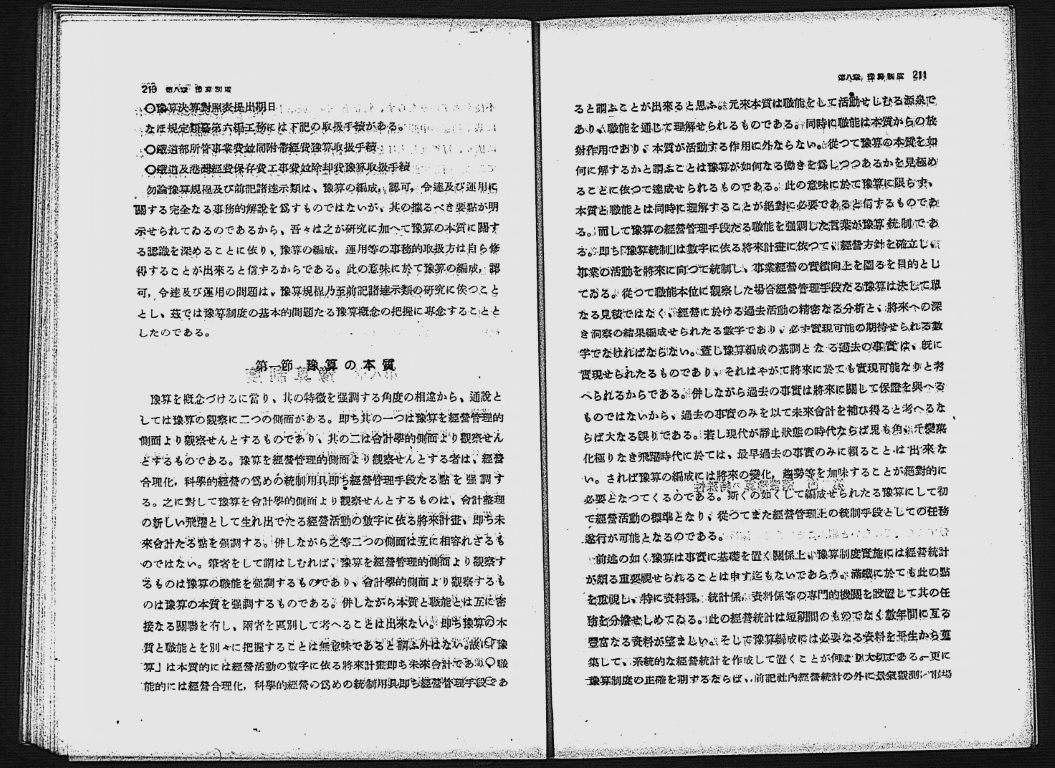 210 第八章 豫算制度
〇豫算決算對照表提出期日
なほ規定類纂第六編工務には下記の取扱手續がある。
〇鐵道部所管事業費竝同附帶經費豫算取扱手續
〇鐵道及港灣經費保存費工事費竝除却費豫算取扱手續
勿論豫算規程及び前記諸達示類は、豫算の編成、認可、令達及び運用に
關する完全なる事務的解說を爲すものではないが、其の據るべき要點が明
示せられてゐるのであるから、吾々は之が硏究に加へて豫算の本質に關す
る認識を深めることに依り、豫算の編成、運用等の事務的取扱方は自ら修
得することが出來ると信ずるからである。此の意味に於て豫算の編成、認
可、令達及び運用の問題は、豫算規程乃至前記諸達示類の硏究に俟つこと
とし、茲では豫算制度の基本的問題たる豫算概念の把握に專念すること
としたのである。
第一節 豫算の本質
豫算を概念づけるに當り、其の特徵を强調する角度の相違から、通說と
しては豫算の觀察に二つの側面がある。卽ち其の一つは豫算を經營管理的
側面より觀察せんとするものであり、其の二は會計學的側面より觀察せん
とするものである。豫算を經營管理的側面より觀察せんとする者は、經營
合理化、科學的經營の爲めの統制用具卽ち經營管理手段たる點を强調す
る。之に對して豫算を會計學的側面より觀察せんとするものは、會計整理
の新しい飛躍として生れ出でたる經營活動の數字に依る將來計畫、卽ち未
來會計たる點を强調する。併しながら之等二つの側面は互に相容れざるも
のではない。筆者をして謂はしむれば、豫算を經營管理的側面より觀察す
るものは豫算の職能を强調するものであり、會計學的側面より觀察するも
のは豫算の本質を强調するものである。併しながら本質と職能とは互に密
接なる關聯を有し、兩者を區別して考へることは出來ない。卽ち豫算の本
質と職能とを別々に把握することは無意味であると謂ふ外はない。故に「豫
算」は本質的には經營活動の數字に依る將來計畫卽ち未來會計であり、職
能的には經營合理化、科學的經營の爲めの統制用具卽ち經營管理手段であ
第八章 豫算制度 211
ると謂ふことが出來ると思ふ。元來本質は職能をして活動せしむる源泉で
あり、職能を通じて理解せられるものである。同時に職能は本質からの放
射作用であり、本質が活動する作用に外ならない。從つて豫算の本質を如
何に解するかと謂ふことは豫算が如何なる働きを爲しつつあるかを見極め
ることに依つて達成せられるものである。此の意味に於て豫算に限らず、
本質と職能とは同時に理解することが絕對に必要であると信ずるものであ
る。而して豫算の經營管理手段たる職能を强調した言葉が豫算統制であ
る。卽ち「豫算統制」は數字に依る將來計畫に依つて、經營方針を確立し、
事業の活動を將來に向つて統制し、事業經營の實績向上を圖るを目的とし
てゐる。從つて職能本位に觀察した場合經營管理手段たる豫算は決して單
なる見積ではなく、經營に於ける過去活動の精密なる分析と、將來への深
き洞察の結果編成せられたる數字であり、必ず實現可能の期待せられる數
字でなければならない。蓋し豫算編成の基調となる過去の事實は、旣に
實現せられたるものであり、それはやがて將來に於ても實現可能なりと考
へられるからである。併しながら過去の事實は將來に關して保證を與へる
ものではないから、過去の事實のみを以て未來會計を補ひ得ると考へるな
らば大なる誤りである。若し現代が靜止狀態の時代ならば兎も角、千變萬
化極りなき飛躍時代に於ては、最早過去の事實のみに賴ることは出來な
い。されば豫算の編成には將來の變化、趨勢等を加味することが絕對的に
必要となつてくるのである。斯くの如くして編成せられたる豫算にして初
て經營活動の標準となり、從つてまた經營管理上の統制手段としての任務
遂行が可能となるのである。
前述の如く豫算は事實に基礎を置く關係上、豫算制度實施には經營統計
が頗る重要視せられることは申す迄もないであらう。滿鐵に於ても此の點
を重視し、特に資料課、統計係、資料係等の專門的機關を設置して其の任
務を分擔せしめてゐる。此の經營統計は短期間のものでなく數年間に亙る
豐富なる資料が望ましい。そして豫算編成には必要なる資料を平生から蒐
集して、系統的な經營統計を作成して置くことが何より大切である。更に
豫算制度の正確を期するならば、前記社內經營統計の外に景氣觀測、市場